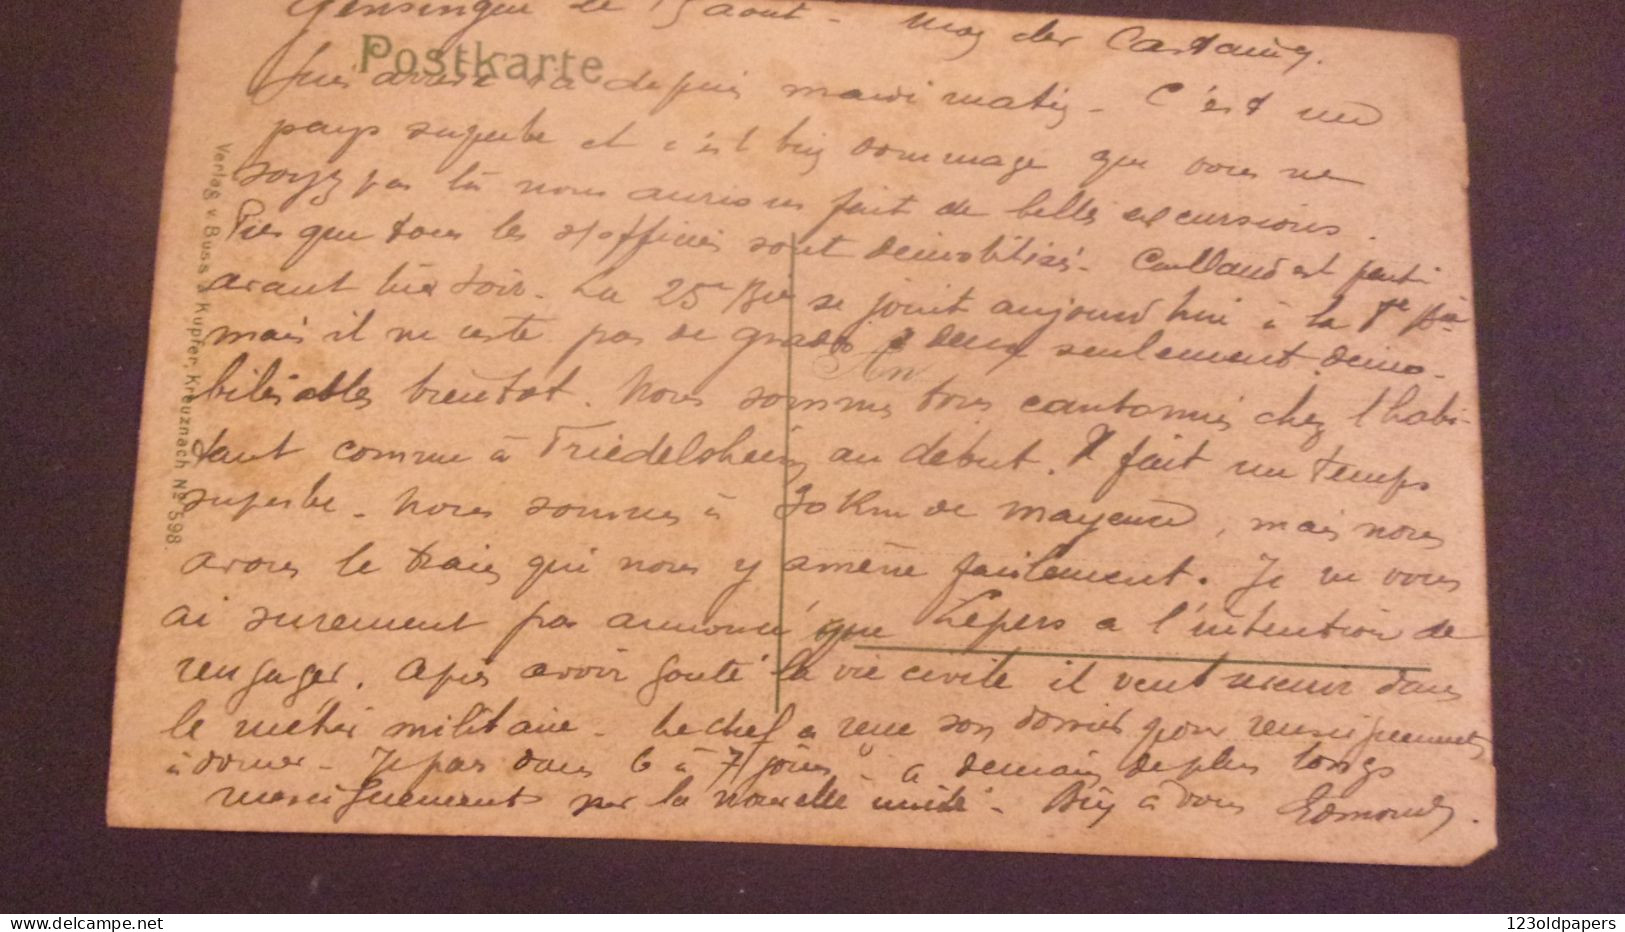 Gensingen le 15 aout - Mon cher Castaing.
Postkarte
suis arrivé ici depuis mardi matin - C'est un
pays superbe et c'est bien dommage que vous ne
soyez pas là nous aurions fait de belles excursions.
Dès que tous les s/officiers sont démobilisés. Caillaud est parti
avant hier soir. La 25e Bie se joint aujourd'hui à la 1re Bie
mais il ne reste pas de gradés 2 deux seulement démo-
An
bilisables bientot. Nous sommes tous cantonnés chez l'habi-
tant comme à Friedelsheim au début. Il fait un temps
superbe. Nous sommes à 30 Km de Mayence, mais nous
avons le train qui nous y amène facilement. Je ne vous
ai surement pas annoncé que Lepers a l'intention de
rengager. Après avoir gouté la vie civile il veut revenir dans
le métier militaire. Le chef a reçu son dossier pour renseignements
à donner. Je pars dans 6 à 7 jours - à demain de plus longs
renseignements sur la nouvelle unité. Bien à vous Edmond.
Verlag v. Buss & Kupfer, Kreuznach No 598.
delcampe.net
123oldpapers